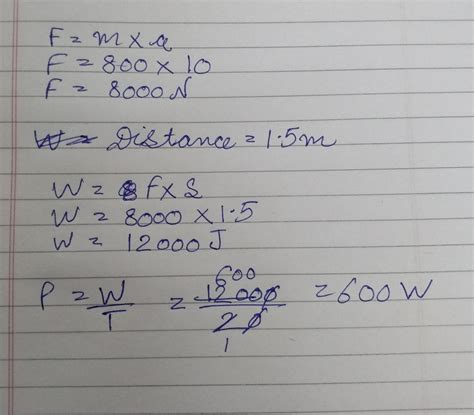 F = m × a
F = 800 × 10
F = 8000 N
W = Distance = 1.5m
W = F × S
W = 8000 × 1.5
W = 12000 J
P = W/T = 12000/20 = 600 W
600
1